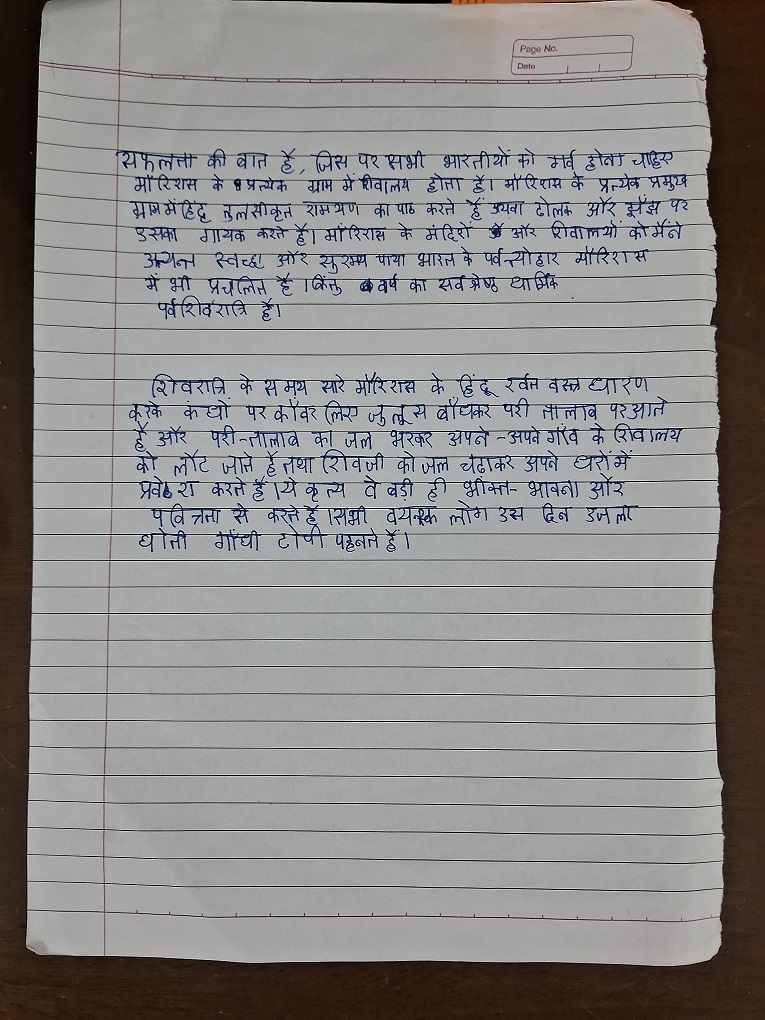 Page No.
Date
सफलता की बात है, जिस पर सभी भारतीयों को गर्व होना चाहिए
मॉरिशस के प्रत्येक ग्राम में शिवालय होता है। मॉरिशस के प्रत्येक प्रमुख
ग्राम में हिंदू तुलसीकृत रामयण का पाठ करते हैं अथवा ढोलक और झाँझ पर
उसका गायक करते है। मॉरिशस के मंदिरों और शिवालयों को मैंने
अत्यन्त स्वच्छ और सुरम्य पाया भारत के पर्व-त्योहार मॉरिशस
में भी प्रचलित है। किंतु वर्ष का सर्वश्रेष्ठ धार्मिक
पर्व शिवरात्रि है।
शिवरात्रि के समय सारे मॉरिशस के हिंदू श्वेत वस्त्र धारण
करके कंधों पर काँवर लिए जुलूस बाँधकर परी तालाब पर आते
है और परी-तालाब का जल भरकर अपने-अपने गाँव के शिवालय
को लौट जाते है तथा शिवजी को जल चढाकर अपने घरों में
प्रवेश करते है। ये कृत्य वे बड़ी ही भक्ति-भावना और
पवित्रता से करते है। सभी वयस्क लोग उस दिन उजला
धोती गाँधी टोपी पहनते है।